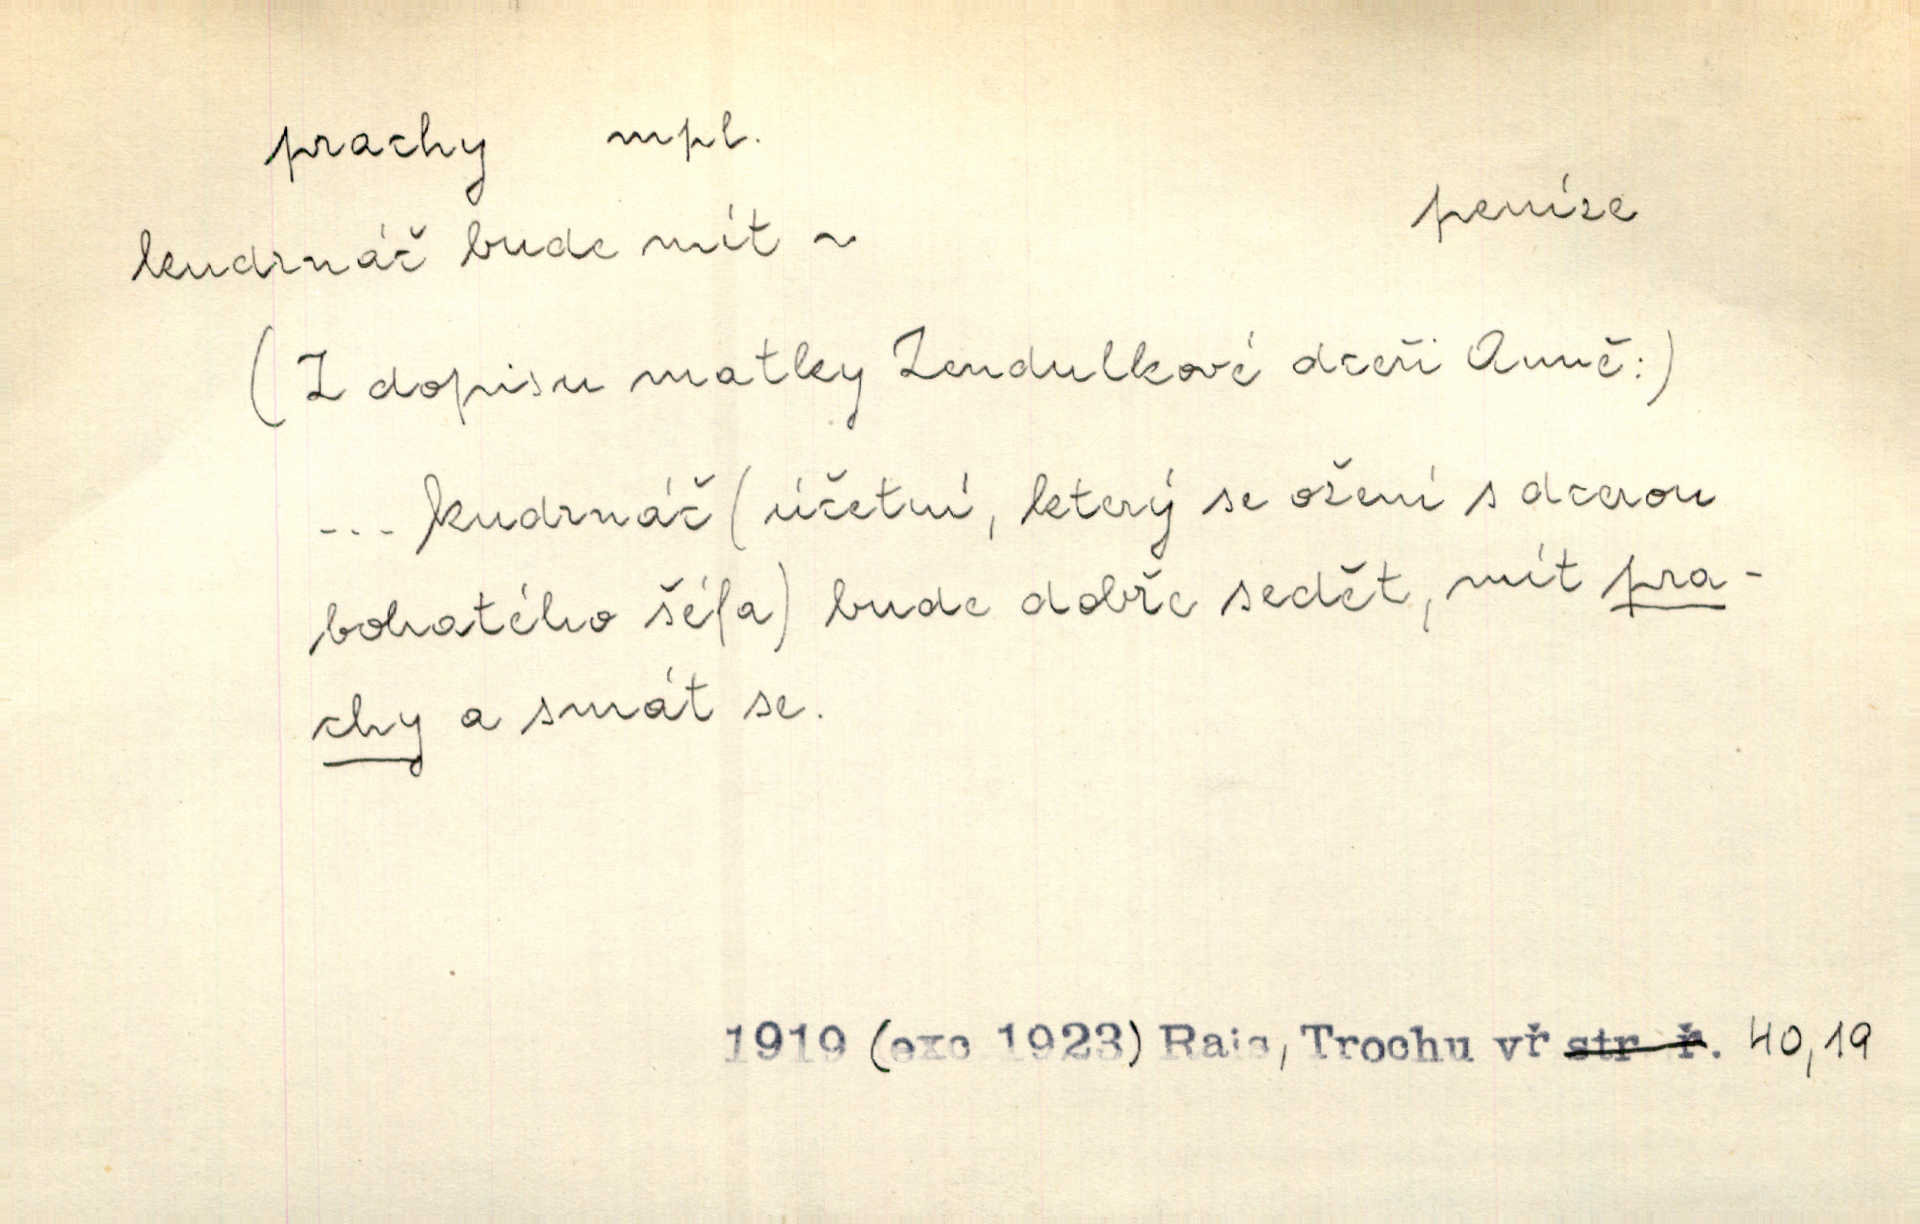 prachy mpl.
peníze
kudrnáč bude mít ~
(Z dopisu matky Zendulkové dceři Anně:)
... kudrnáč (účetní, který se ožení s dcerou
bohatého šéfa) bude dobře sedět, mít pra-
chy a smát se.
1919 (exc 1923) Rais, Trochu vř str ř. 40,19